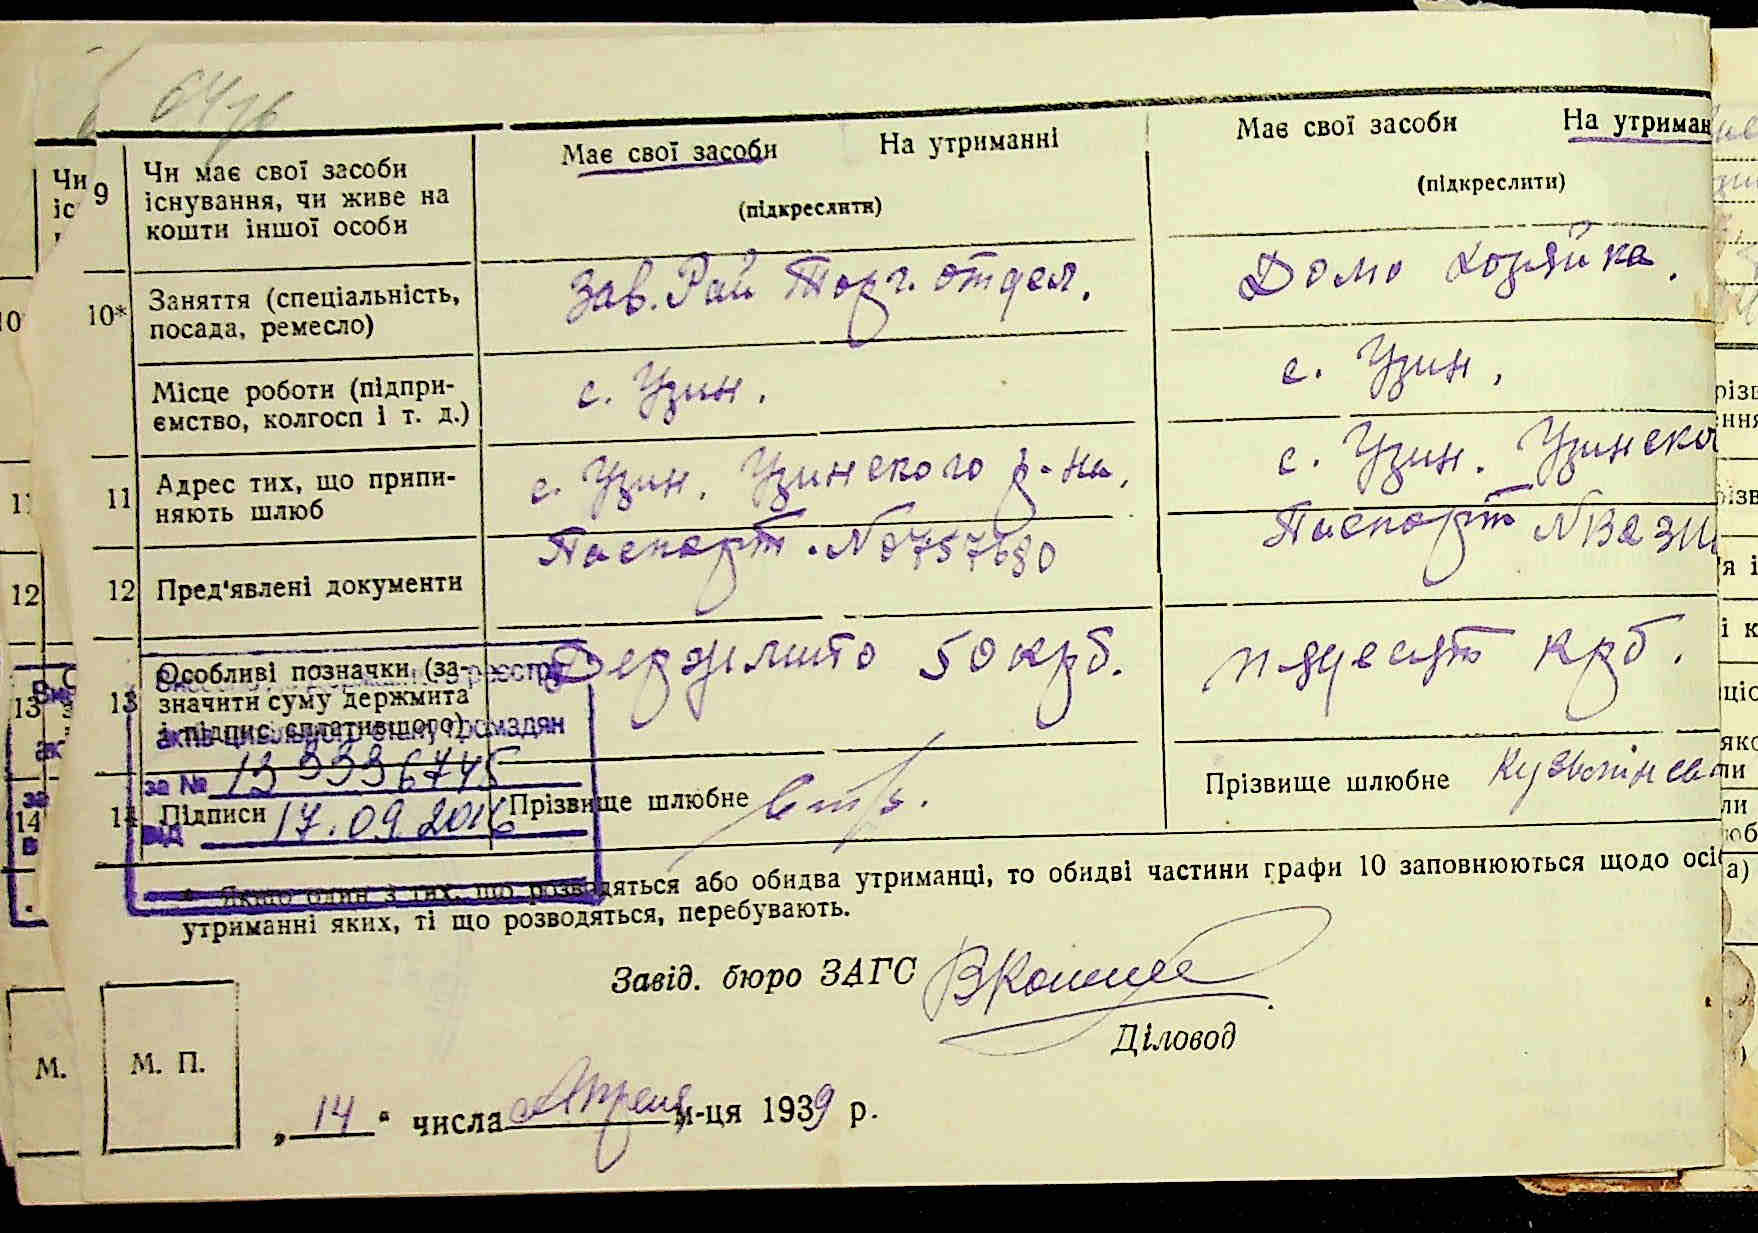 Чи має свої засоби
існування, чи живе на
кошти іншої особи
9
Має свої засоби На утриманні
(підкреслити)
Має свої засоби На утриман
(підкреслити)
10*
Заняття (спеціальність,
посада, ремесло)
Зав. Рай Торг. отдел.
Домо хозяйка.
Місце роботи (підпри-
ємство, колгосп і т. д.)
с. Узин.
с. Узин,
11
Адрес тих, що припи-
няють шлюб
с. Узин, Узинского р-на,
с. Узин. Узинско
12
Пред'явлені документи
Паспорт. №
Паспорт №
13
Особливі позначки (за-
значити суму держмита
і підпис сплатившого)
Держмито 50 крб.
пядесят крб.
громадян
за № 13 3336745
від 17.09.2016
14
Підписи
Прізвище шлюбне
Прізвище шлюбне
* Якщо один з тих, що розводяться або обидва утриманці, то обидві частини графи 10 заповнюються щодо осі
утриманні яких, ті що розводяться, перебувають.
Завід. бюро ЗАГС
Діловод
М. П.
М.
„ 14 " числа Апреля м-ця 1939 р.